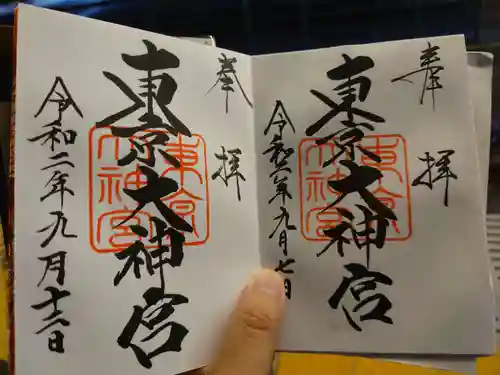 奉拝
東京大神宮
令和二年九月七日
奉拝
東京大神宮
令和二年九月十二日
東京
大神宮
東京
大神宮